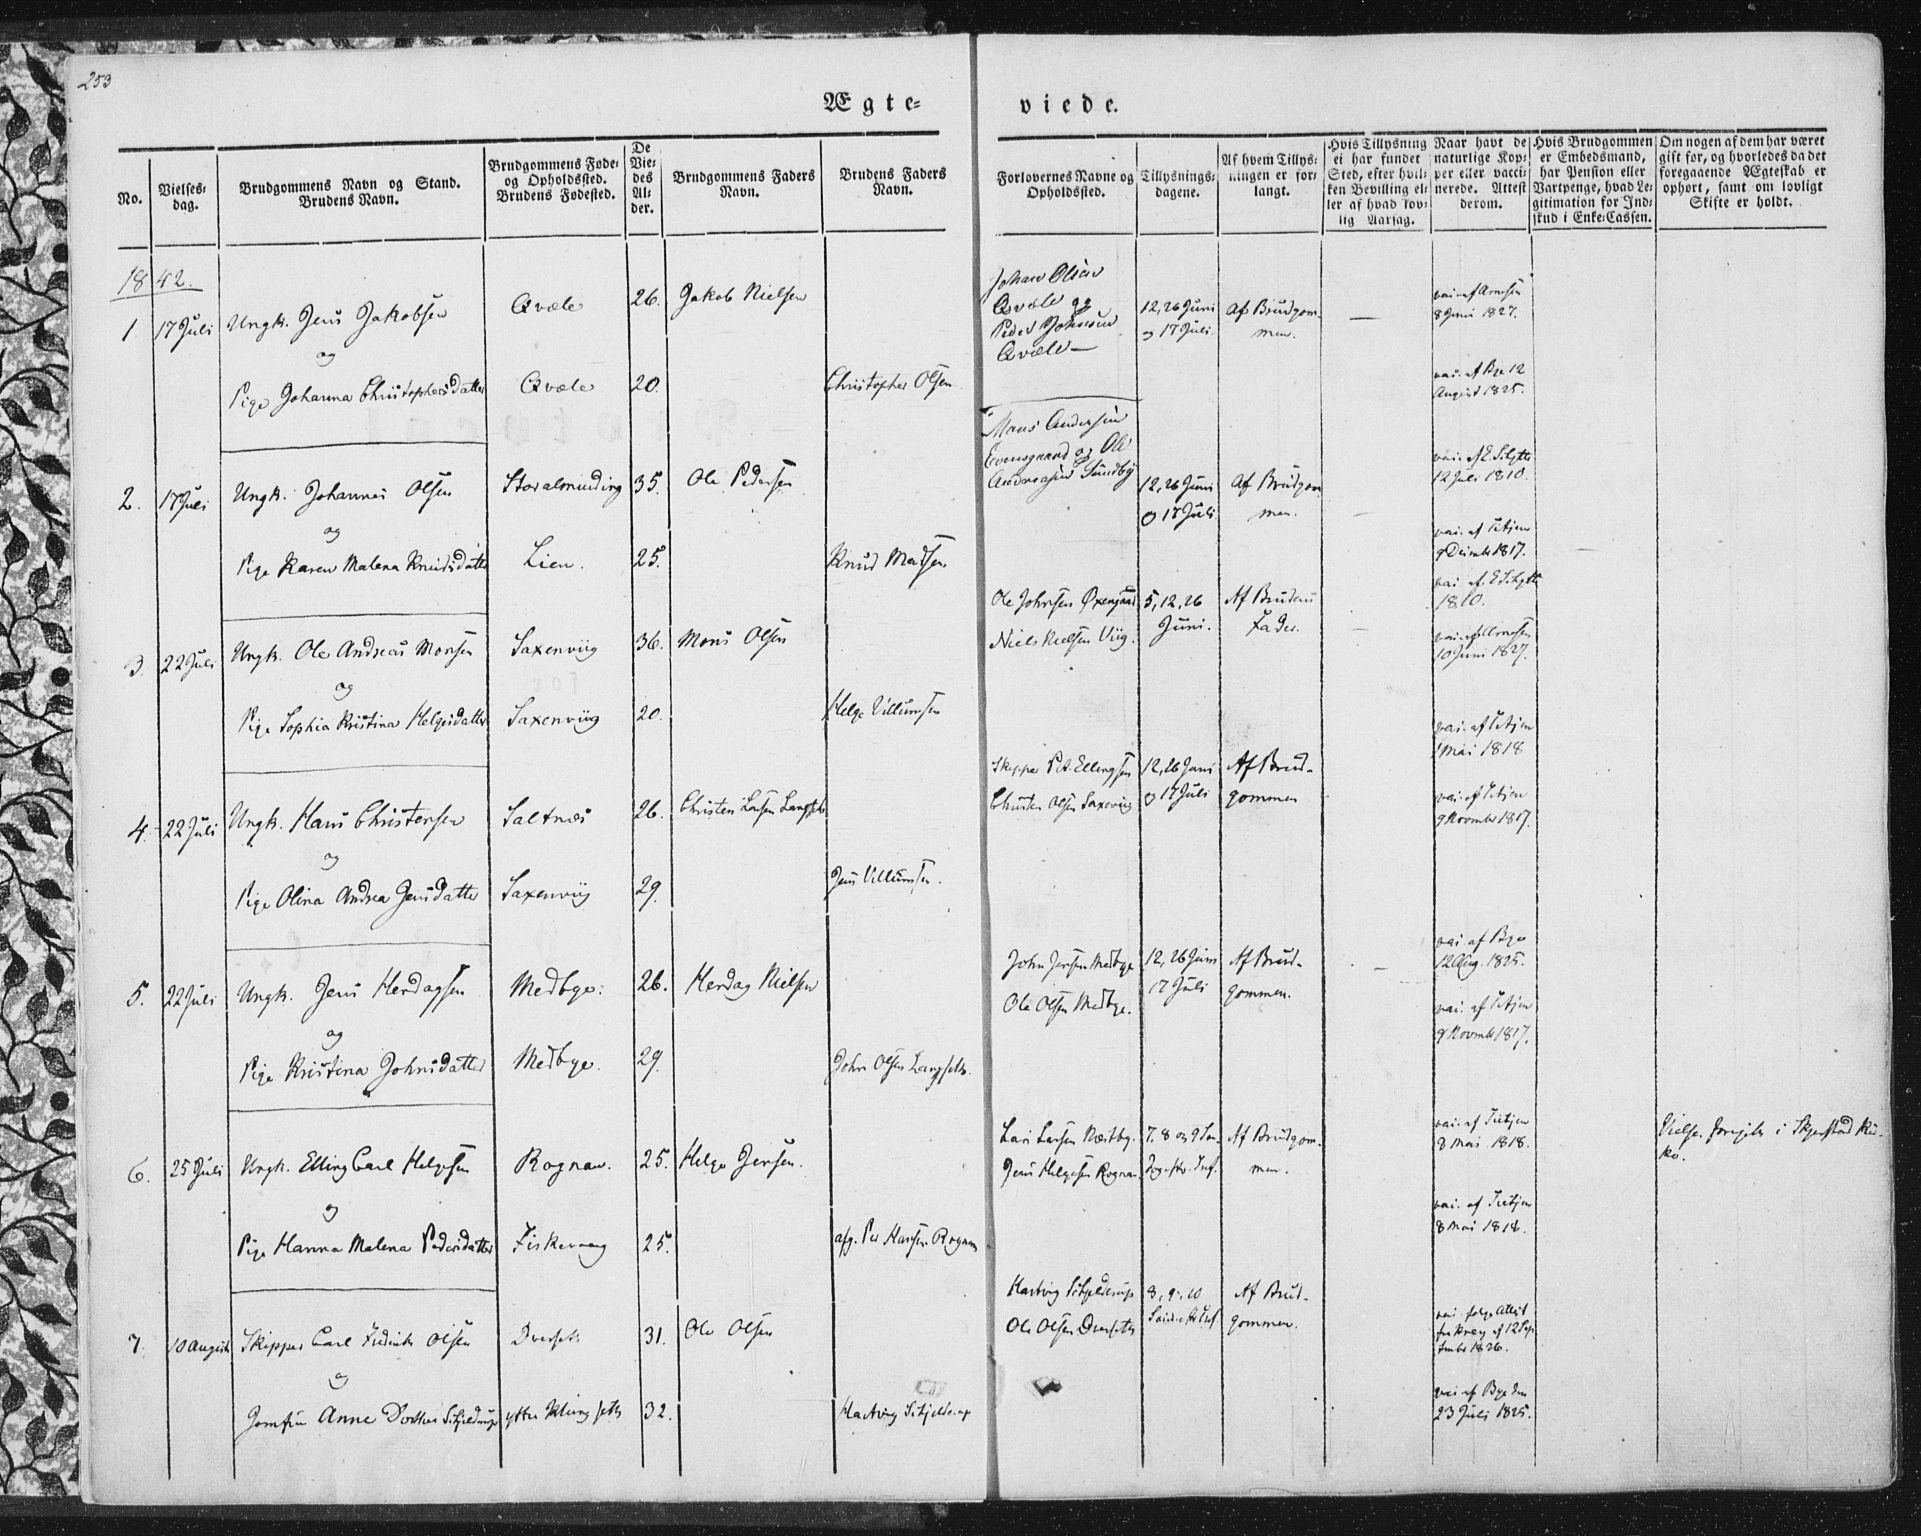 253
Ægte=
viede.
No.
Vielses=
dag.
Brudgommens Navn og Stand.
Brudens Navn.
Brudgommens Føde=
og Opholdssted.
Brudens Fødested.
De
Vie=
des
Al=
der.
Brudgommens Faders
Navn.
Brudens Faders
Navn.
Forlovernes Navne og
Opholdssted.
Tillysnings=
dagene.
Af hvem Tillys=
ningen er for=
langt.
Hvis Tillysning
ei har fundet
Sted, efter hvil=
ken Bevilling el=
ler af hvad lov=
lig Aarsag.
Naar havt de
naturlige Kop=
per eller vacci=
nerede. Attest
derom.
Hvis Brudgommen
er Embedsmand,
har Pension eller
Vartpenge, hvad Le=
gitimation for Ind=
skud i Enke=Cassen.
Om nogen af dem har været
gift før, og hvorledes da det
foregaaende Ægteskab er
ophørt, samt om lovligt
Skifte er holdt.
1842.
1 17 Juli Ungk. Jens Jakobsen Qvæle 26. Jakob Nielsen
og
Pige Johanna Christophersdatter Qvæle 20. Christopher Olsen
Johan Olsen
Qvæle og
Peder Johnsen
Qvæle
12, 26 Juni
og 17 Juli.
Af Brudgom-
men.
vac. af Arnesen
8 Juni 1827.
vac. af Bye 12
August 1825.
2. 17 Juli Ungk. Johannes Olsen Storalminding 35. Ole Pedersen
og
Pige Karen Malena Knudsdatter Lien. 25. Knud Madsen
Mons Andersen
Evensgaard og Ole
Andreasen Sundby
12, 26 Juni
og 17 Juli
Af Brudgom
men.
vac. af E. Schytte
12 Juli 1810.
vac. af Tetjen
9 Decimber 1817.
3. 22 Juli Ungk. Ole Andreas Monsen Saxenviig 36. Mons Olsen
og
Pige Sophia Kristina Helgesdatter Saxenviig 20. Helge Villumsen
Ole Johnsen Øxengaard
Niels Nielsen Viig.
5, 12, 26
Juni.
Af Brudens
Fader.
vac. af E Schytte
1810.
vac. af Arnesen
10 Juni 1827.
4. 22 Juli Ungk. Hans Christensen Saltnes 26. Christen Larsen Langseth
og
Pige Olina Andrea Jensdatter Saxenviig 29. Jens Villumsen.
Skipper Pet. Ellingsen
Christen Olsen Saxenviig
12, 26 Juni
og 17 Juli
Af Brud-
gommen
vac. af Tetjen
1 Mai 1818
vac. af Tetjen
9 Novmber 1817.
5. 22 Juli Ungk. Jens Herdagsen Medbye. 26. Herdag Nielsen
og
Pige Kristina Johnsdatter Medbye. 29. John Olsen Langseth.
John Jensen Medbye
Ole Olsen Medbye.
12, 26 Juni
17 Juli
Af Brud-
gommen.
vac. af Bye
12 Aug. 1825.
vac. af Tetjen
9 Novmbr 1817.
6. 25 Juli Ungk. Elling Carl Helgesen Rognan. 25. Helge Jensen.
og
Pige Hanna Malena Pedersdatter Fiskevaag 25. afg. Per Hansen Rognan
Lars Larsen Næstby.
Jens Helgesen Rognan
7. 8 og 9 Søn-
Af Brudgom-
men.
vac. af Tietjen
8 Mai 1818.
vac. af Tietjen
8 Mai 1818.
Vielse foregik i Skjerstad Kir-
ke.
7. 10 August Skipper Carl Fredrik Olsen Dverset 31. Ole Olsen
og
Jomfru Anne Dorthea Schjelderup ytter Klungseth 32. Hartvig Schjelderup
Hartvig Schjelderup
Ole Olsen Dverseth
8, 9, 10
Af Brud-
gommen.
vac. følge Attest
12 Sep
tember 1826.
vac. af Bye den
23 Juli 1825.